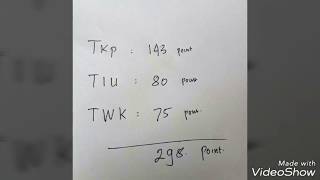 TKP : 143 point
TIU : 80 point
TWK : 75 point.
298. point.
Made with
VideoShow